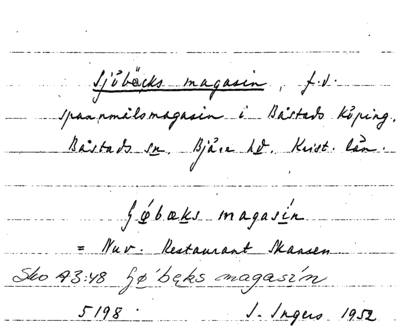 Sjöbäcks magasin, f.d.
spannmålsmagasin i Båstads köping.
Båstads sn. Bjäre hd. Krist. län.
magasin
= Nuv. Restaurant Skansen
Sko A3:48 magasin
5198. I. Ingers 1952